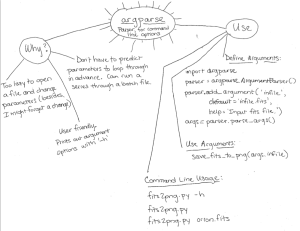 argparse
Parser for command
line options
Why?
Too lazy to open
a file and change
parameters (besides,
I might forgot a change)
Don't have to predict
parameters to loop through
in advance. Can run a
series through a batch file.
User friendly.
Prints out argument
options with '-h'
Use
Define Arguments:
import argparse
parser = argparse.ArgumentParser()
parser.add_argument('infile',
default='infile.fits',
help='Input fits file')
args = parser.parse_args()
Use Arguments:
save_fits_to_png(args.infile)
Command Line Usage:
fits2png.py -h
fits2png.py
fits2png.py orion.fits